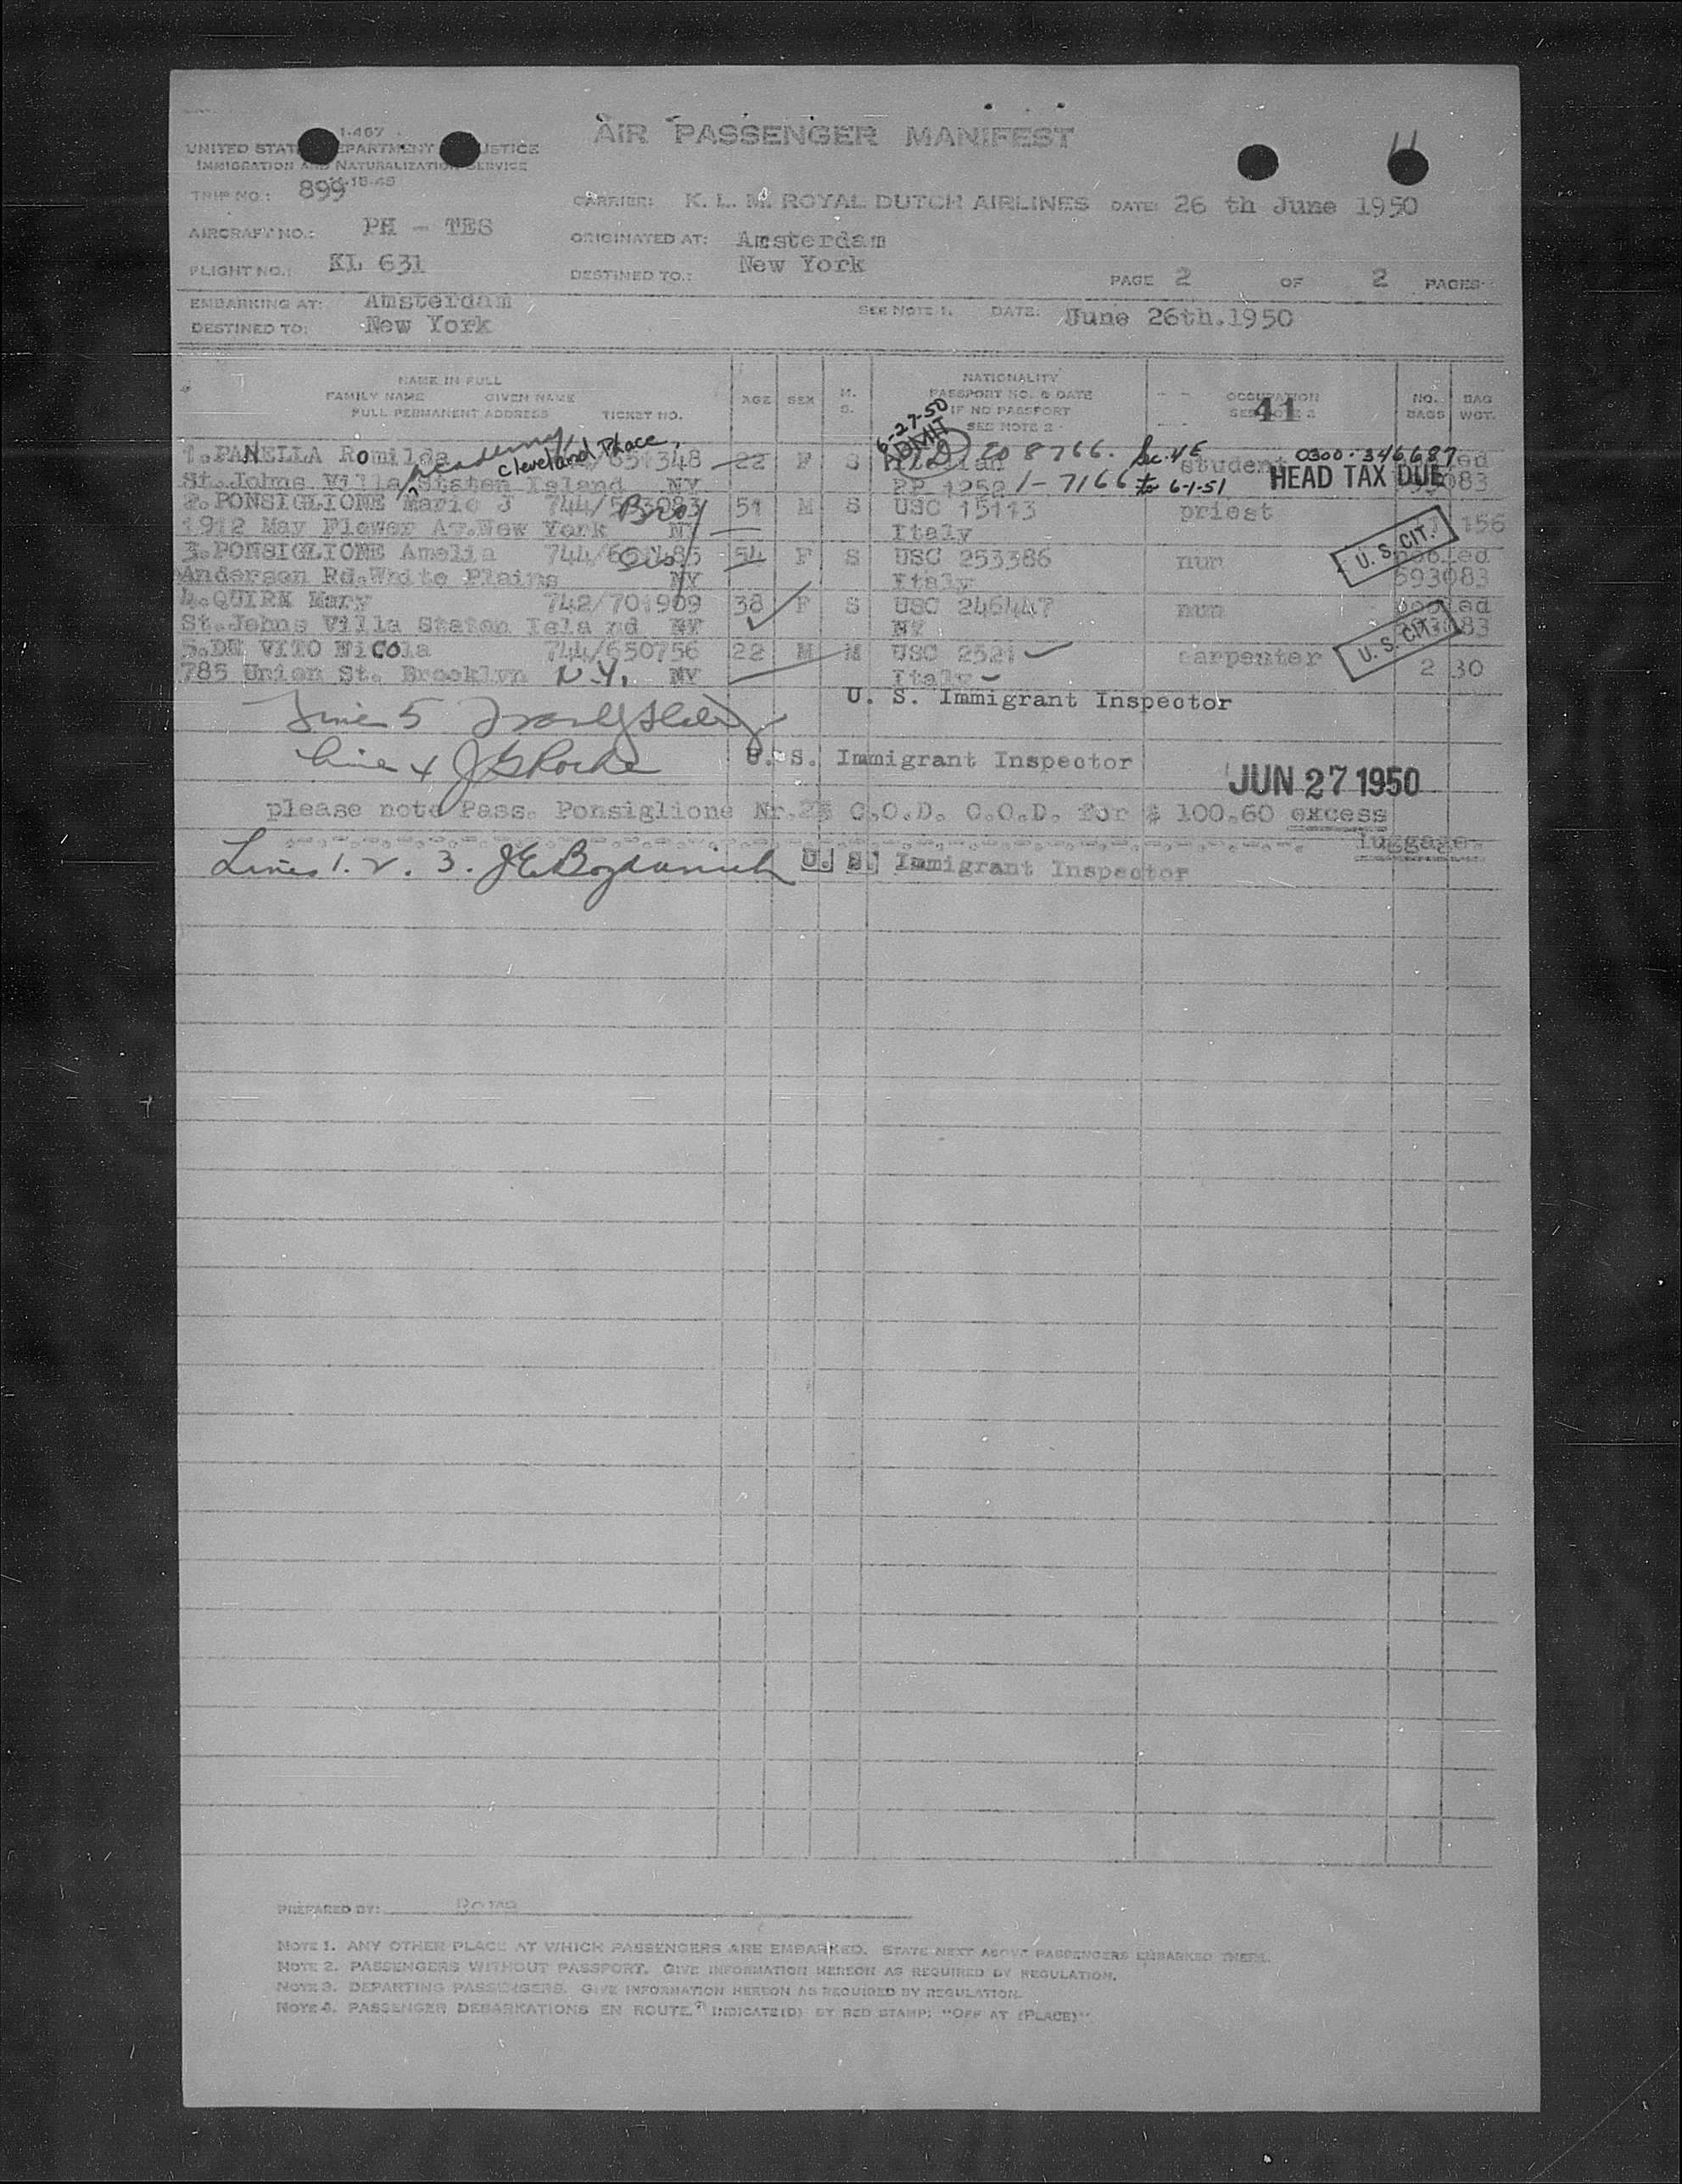 I-467
AIR PASSENGER MANIFEST
11
UNITED STATES DEPARTMENT JUSTICE
IMMIGRATION AND NATURALIZATION SERVICE
TRIP NO.: 899
CARRIER: K. L. M. ROYAL DUTCH AIRLINES DATE: 26 th June 1950
AIRCRAFT NO.: PH - TES
ORIGINATED AT: Amsterdam
FLIGHT NO.: KL 631
DESTINED TO.: New York
PAGE 2 OF 2 PAGES
EMBARKING AT: Amsterdam
SEE NOTE 1. DATE: June 26th.1950
DESTINED TO: New York
NAME IN FULL
FAMILY NAME GIVEN NAME
FULL PERMANENT ADDRESS TICKET NO.
AGE SEX M. S.
NATIONALITY
PASSPORT NO. & DATE
IF NO PASSPORT
SEE NOTE 2
OCCUPATION
41
NO. BAGS
BAG WGT.
6-27-50
ADMIT
Academy, Cleveland Place,
1.PANELLA Romilda 651348 22 F S 208766. Sec. 4E student 0300-346687
St.Johns Villa Staten Island NY PP 1252 1-7166 to 6-1-51 HEAD TAX DUE
2.PONSIGLIONE Mario J 51 M S USC 15113 priest
1912 May Flower Av.New York NY Italy 156
U. S. CIT.
3.PONSIGLIONE Amelia 54 F S USC 253386 nun pooled
Anderson Rd.White Plains NY Italy 593083
4.QUIRK Mary 742/701909 38 F S USC 246447 nun pooled
St.Johns Villa Staten Island NY NY
U. S. CIT.
5.DE VITO Nicola 744/650756 22 M M USC 2521 carpenter
785 Union St. Brooklyn N.Y. NY Italy 2 30
Line 5
U. S. Immigrant Inspector
Line 4 J G Roche U. S. Immigrant Inspector
JUN 27 1950
please note Pass. Ponsiglione Nr.23 C.O.D. C.O.D. for $ 100.60 excess
luggage.
Lines 1. 2. 3. U. S. Immigrant Inspector
PREPARED BY: Rome
NOTE 1. ANY OTHER PLACE AT WHICH PASSENGERS ARE EMBARKED. STATE NEXT ABOVE PASSENGERS EMBARKED THERE.
NOTE 2. PASSENGERS WITHOUT PASSPORT. GIVE INFORMATION HEREON AS REQUIRED BY REGULATION.
NOTE 3. DEPARTING PASSENGERS. GIVE INFORMATION HEREON AS REQUIRED BY REGULATION.
NOTE 4. PASSENGER DEBARKATIONS EN ROUTE. INDICATE(D) BY RED STAMP: "OFF AT (PLACE)".